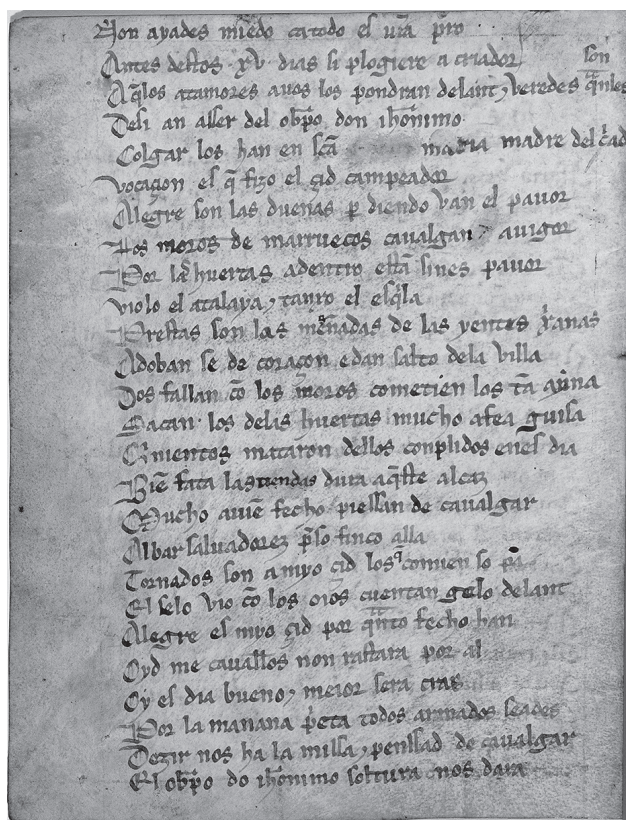 Non ayades miedo ca todo es vr̃a pro
Antes destos .xv. dias si plogiere a criador
Aq̃los atamores auos los pondran delant ⁊ veredes q̃nles son
Desi an asser del ob̃po don ih̃onimo
Colgar los han en sc̃a maria madre del c̃ad
vocaçion es q̃ fizo el çid campeador
Alegre son las dueñas p̱diendo van el pauor
Los moros de marruecos caualgan ⁊ auigor
Por las huertas adentro estã sines pauor
violo el atalaya ⁊ tanxo el esq̃la
Prestas son las mesnadas de las yentes xp̃anas
Adoban se de coraçon e dan salto dela villa
Dos fallan cõ los moros cometien los tã ayna
Sacan los delas huertas mucho afea guisa
Quinientos mataron dellos conplidos enes dia
Biẽ fata las tiendas dura aq̃ste alcaz
Mucho auiẽ fecho piessan de caualgar
Albar saluadorez p̃so finco alla
Tornados son a myo çid los q̃ comien so pã
El selo vio cõ los oios cuentan gelo delant
Alegre es myo çid por q̃nto fecho han
Oyd me caualłos non rastara por al
Oy es dia bueno ⁊ meior sera cras
Por la mañana p̃eta todos armados seades
Dezir nos ha la missa ⁊ penssad de caualgar
El ob̃po do ih̃onimo soltura nos dara